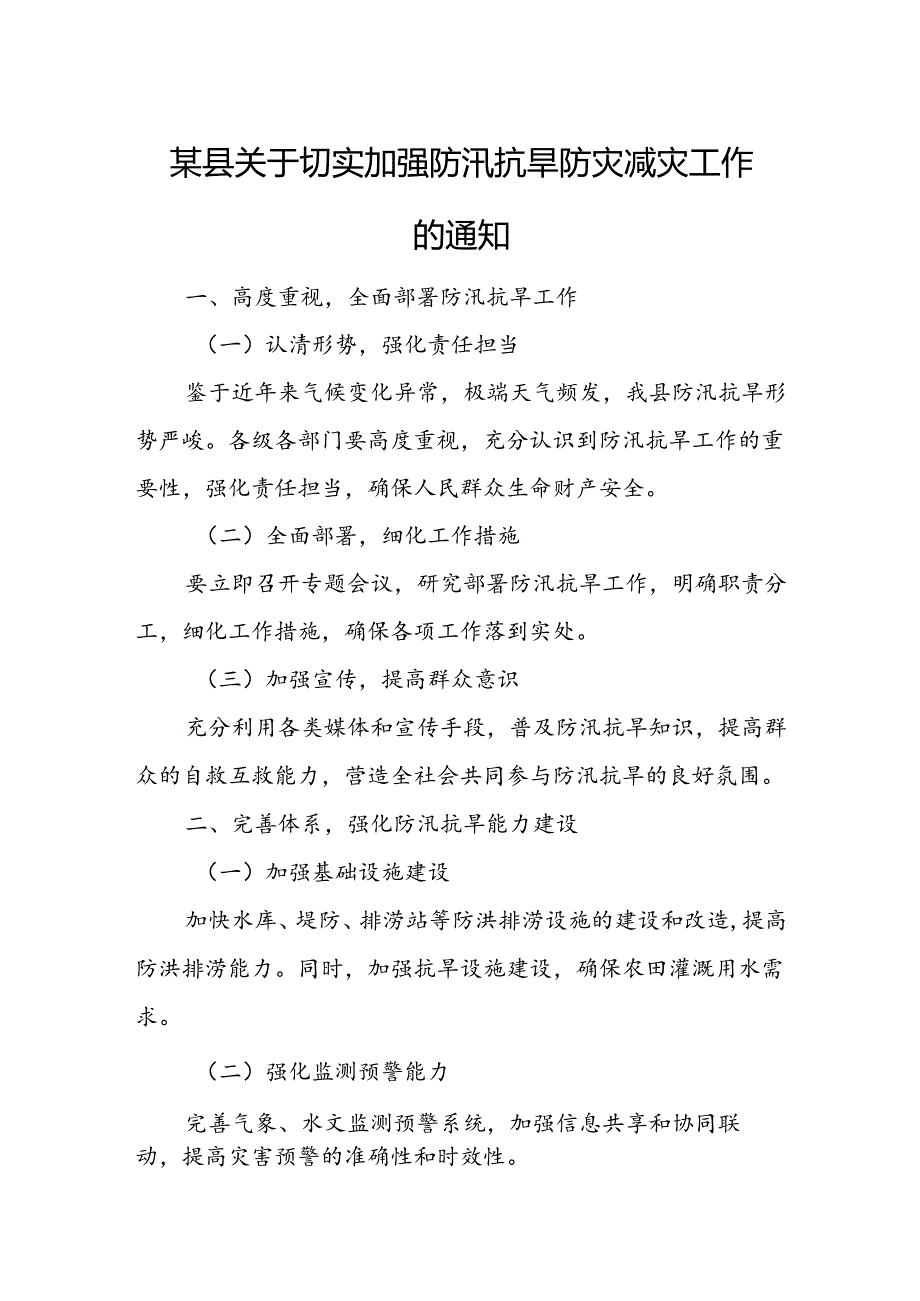 某县关于切实加强防汛抗旱防灾减灾工作
的通知
一、高度重视，全面部署防汛抗旱工作
（一）认清形势，强化责任担当
鉴于近年来气候变化异常，极端天气频发，我县防汛抗旱形
势严峻。各级各部门要高度重视，充分认识到防汛抗旱工作的重
要性，强化责任担当，确保人民群众生命财产安全。
（二）全面部署，细化工作措施
要立即召开专题会议，研究部署防汛抗旱工作，明确职责分
工，细化工作措施，确保各项工作落到实处。
（三）加强宣传，提高群众意识
充分利用各类媒体和宣传手段，普及防汛抗旱知识，提高群
众的自救互救能力，营造全社会共同参与防汛抗旱的良好氛围。
二、完善体系，强化防汛抗旱能力建设
（一）加强基础设施建设
加快水库、堤防、排涝站等防洪排涝设施的建设和改造,提高
防洪排涝能力。同时，加强抗旱设施建设，确保农田灌溉用水需
求。
（二）强化监测预警能力
完善气象、水文监测预警系统，加强信息共享和协同联
动，提高灾害预警的准确性和时效性。